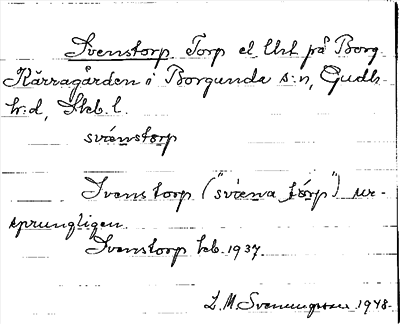 Svenstorp Torp el. Utt på Borg
Kärragården i Borgunda s:n, Gudh.
h:d, Skb. l.
svènstorp
Svenstorp ("svèna tórp") ur-
sprungligen.
Svenstorp leb. 1937.
L. M. Svenungsson 1948.